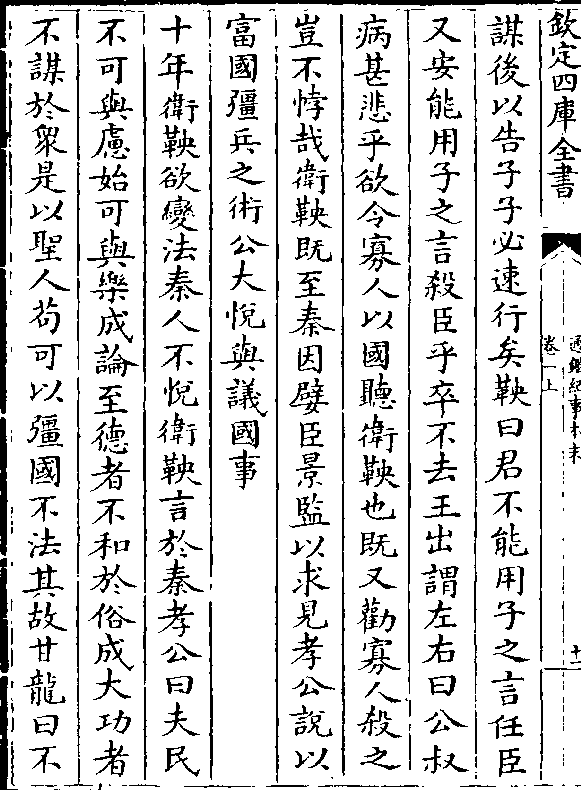 欽定四庫全書
通鑑紀事本末
卷一上
十二
謀後以告子子必速行矣鞅曰君不能用子之言任臣
又安能用子之言殺臣乎卒不去王出謂左右曰公叔
病甚悲乎欲令寡人以國聽衛鞅也既又勸寡人殺之
豈不悖哉衛鞅既至秦因嬖臣景監以求見孝公說以
富國彊兵之術公大悅與議國事
十年衛鞅欲變法秦人不悅衛鞅言於秦孝公曰夫民
不可與慮始可與樂成論至德者不和於俗成大功者
不謀於衆是以聖人苟可以彊國不法其故甘龍曰不